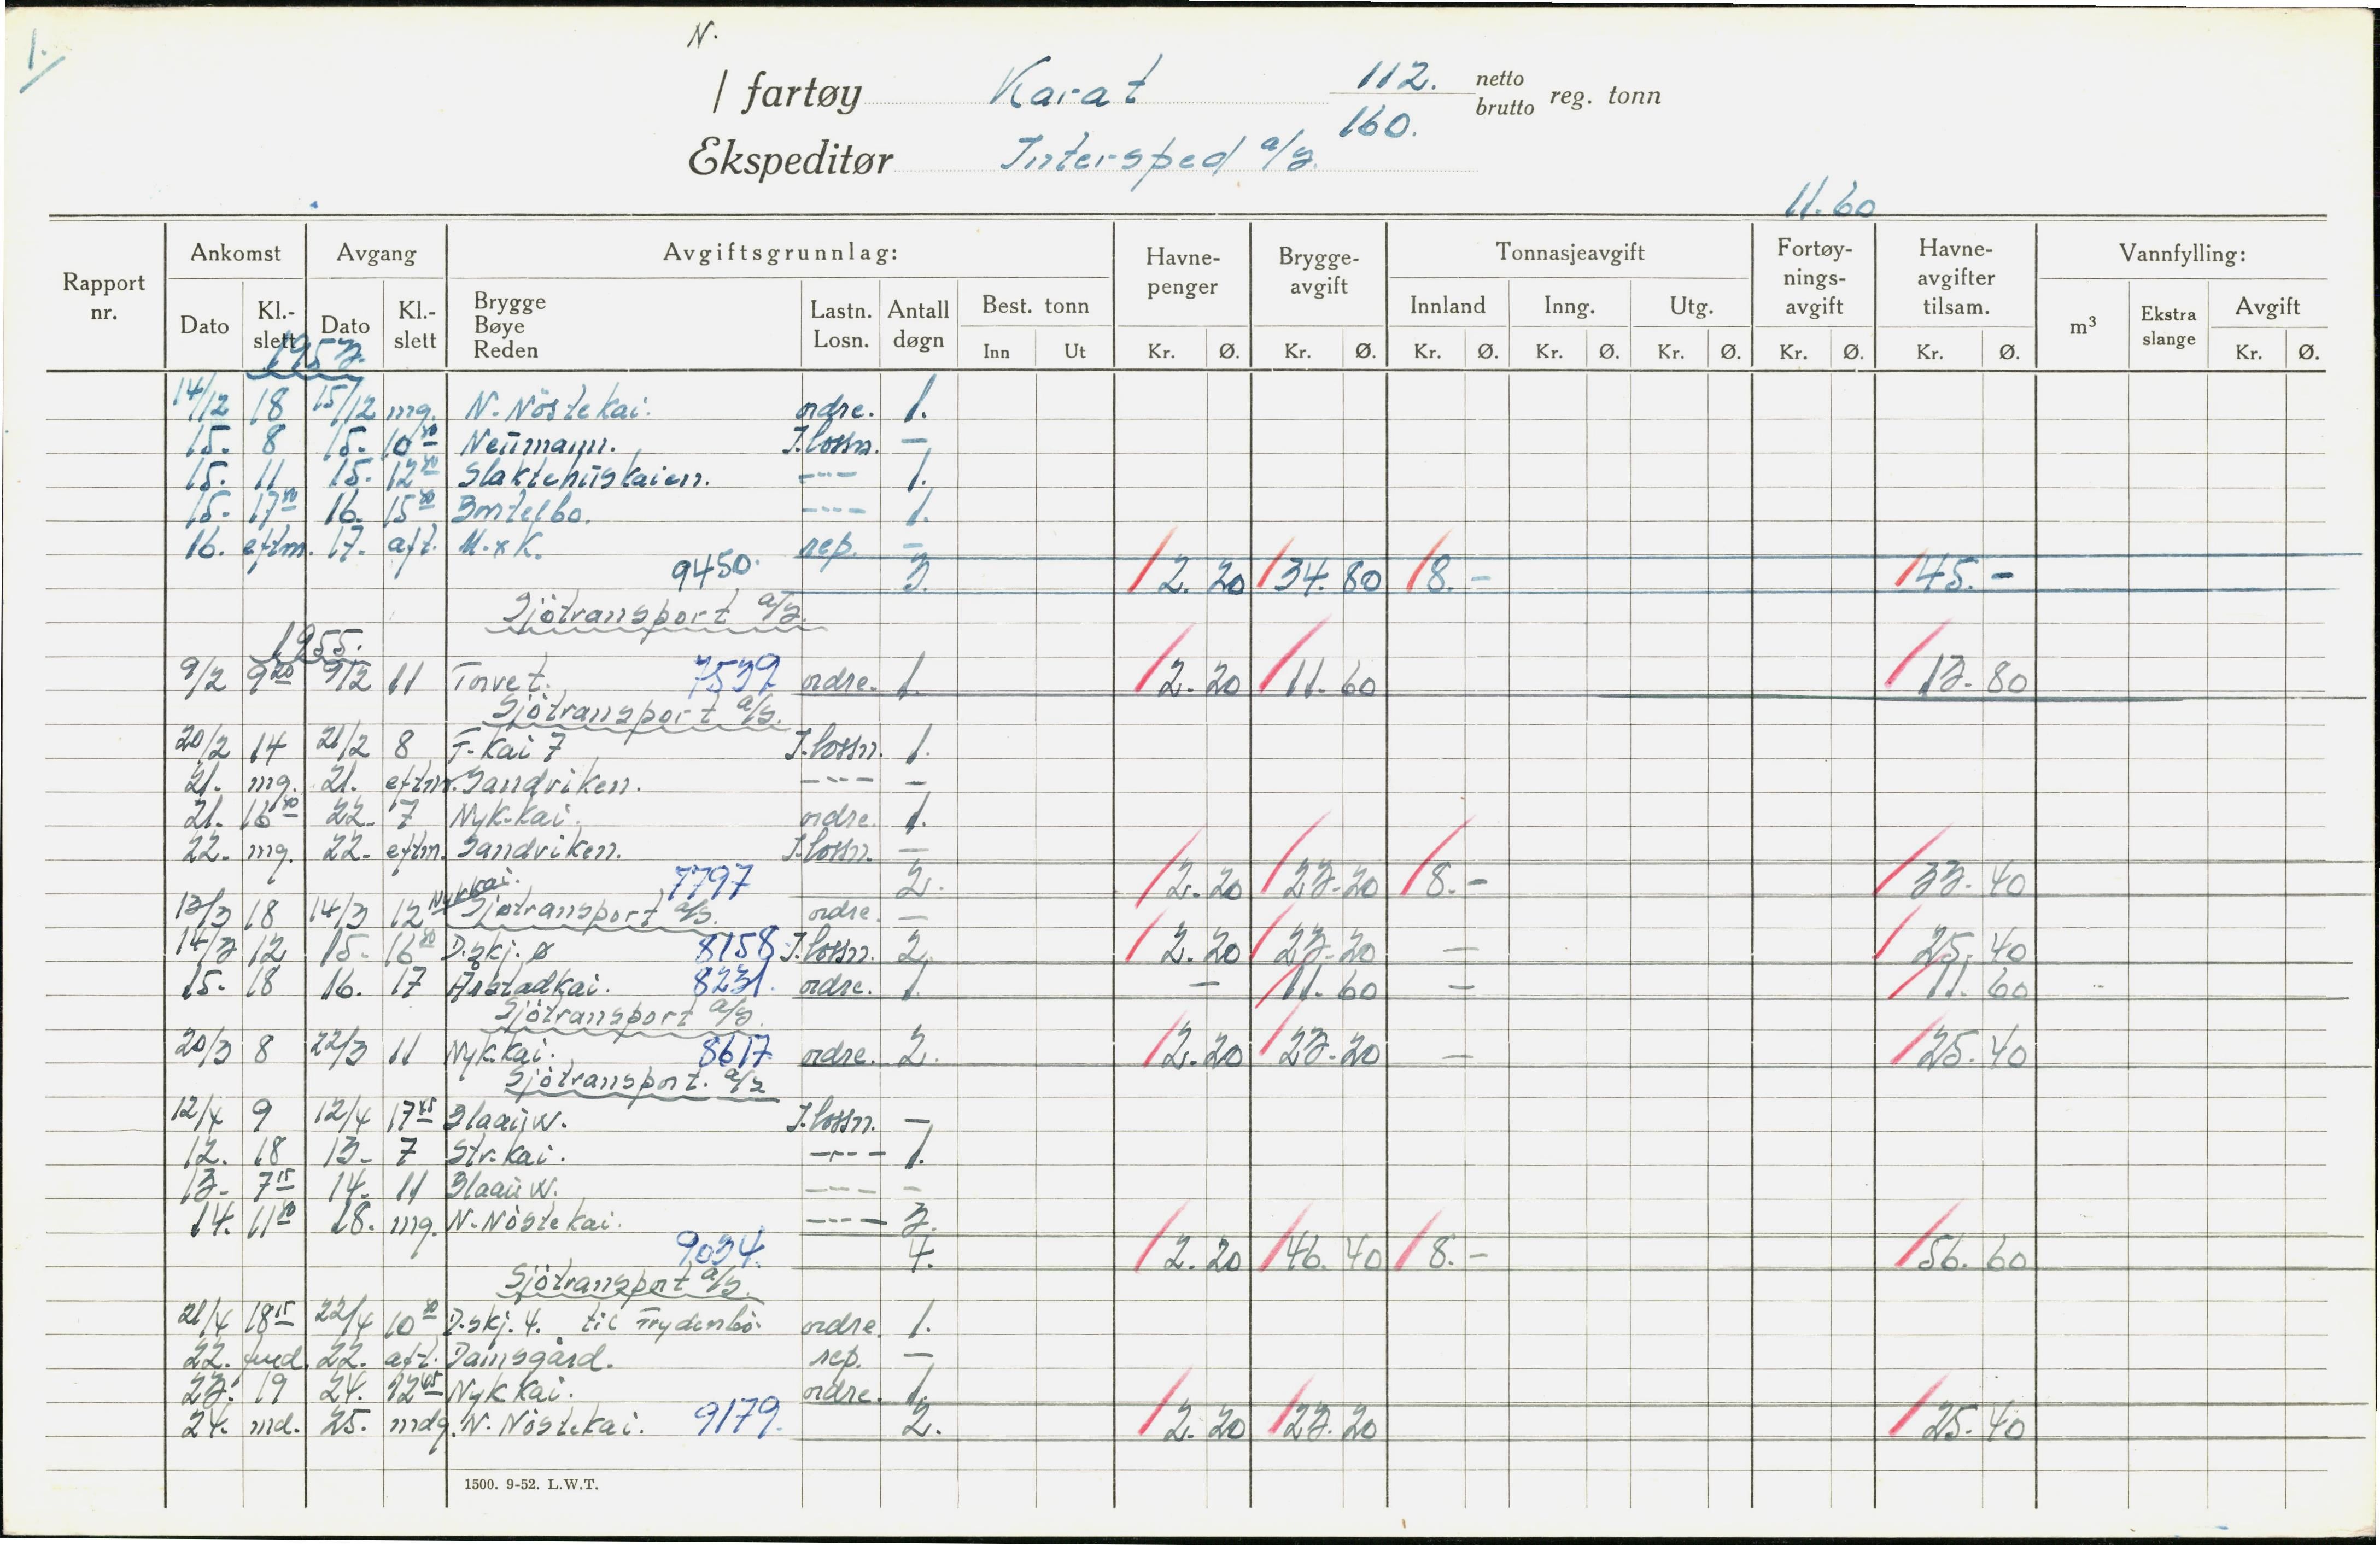 1.
N.
/ fartøy Karat 112. netto
160. brutto reg. tonn
Ekspeditør Intersped a/s.
11.60
Rapport nr. Ankomst Avgang Avgiftsgrunnlag: Havne-penger Brygge-avgift Tonnasjeavgift Fortøy-nings-avgift Havne-avgifter tilsam. Vannfylling:
Dato Kl.-slett Dato Kl.-slett Brygge Bøye Reden Lastn. Losn. Antall døgn Best. tonn Innland Inng. Utg. m³ Ekstra slange Avgift
Inn Ut Kr. Ø. Kr. Ø. Kr. Ø. Kr. Ø. Kr. Ø. Kr. Ø. Kr. Ø. Kr. Ø.
1953.
14/12 18 15/12 mg. N. Nöstekai. ordre. 1.
15. 8 15. 10 30 Neumann. I.lossn. —
15. 11 15. 12 30 Slaktehuskaien. ---- 1.
15. 17 30 16. 15 30 Bontelbo. ---- 1.
16. eftm. 17. aft. M.x K. rep. —
9450. 3. 2.20 34.80 8.- 45.-
Sjötransport a/s.
1955.
9/2 9 20 9/2 11 Torvet. 7539 ordre. 1. 2.20 11.60 13.80
Sjötransport a/s.
20/2 14 21/2 8 F-kai 7 I.lossn. 1.
21. mg. 21. eftm. Sandviken. ---- —
21. 16 30 22. 7 Nyk.kai. ordre. 1.
22. mg. 22. eftm. Sandviken. I.lossn. —
7797 2. 2.20 23.20 8.- 33.40
13/3 18 14/3 12 Nyk.kai. ordre. —
Sjötransport a/s.
14/3 12 15. 16 30 D.skj. ø 8158 I.lossn. 2. 2.20 23.20 — 25.40
15. 18 16. 17 Årstadkai. 8231. ordre. 1. — 11.60 — 11.60
Sjötransport a/s.
20/3 8 22/3 11 Nyk.kai. 8617 ordre. 2. 2.20 23.20 — 25.40
Sjötransport. a/s
12/4 9 12/4 17 45 Blaauw. I.lossn. —
12. 18 13. 7 Str.kai. ---- 1.
13. 7 15 14. 11 Blaauw. ---- —
14. 11 30 18. mg. N. Nöstekai. ---- 3.
9034. 4. 2.20 46.40 8.- 56.60
Sjötransport a/s.
21/4 18 15 22/4 10 30 D.skj. 4. til Frydenbö. ordre. 1.
22. fmd. 22. aft. Damsgård. rep. —
23. 19 24. 12 45 Nyk.kai. ordre. 1.
24. md. 25. mdg. N. Nöstekai. 9179. 2. 2.20 23.20 25.40
1500. 9-52. L.W.T.